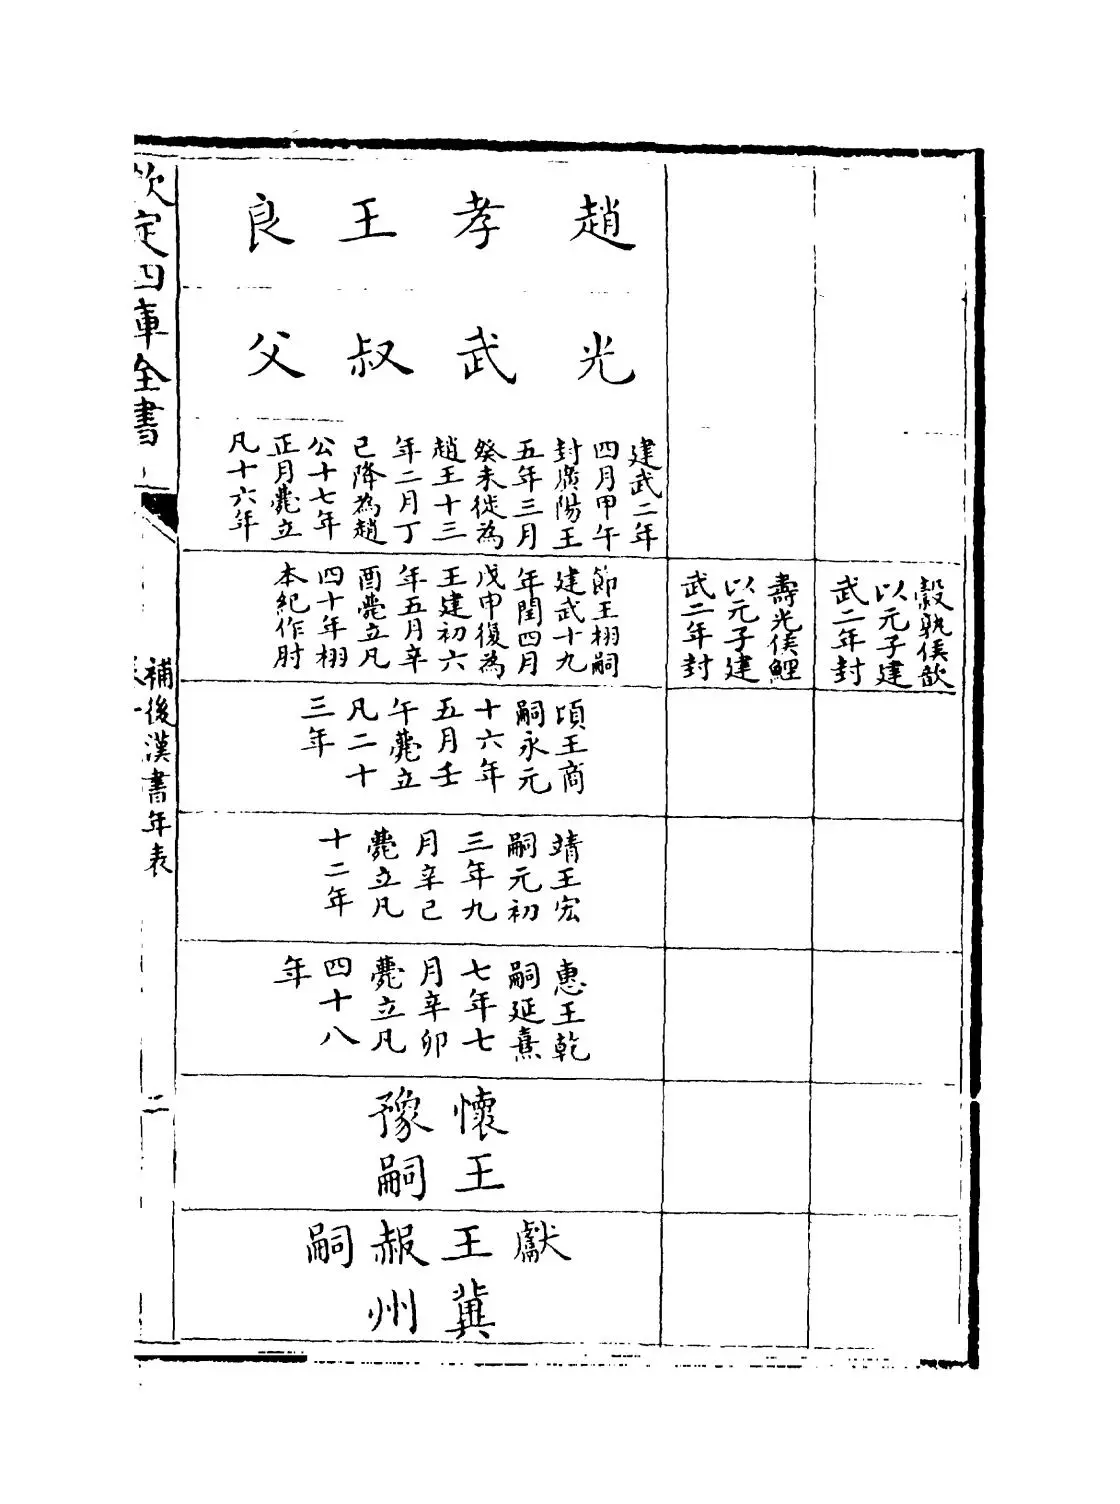 榖孰侯歆
以元子建
武二年封
壽光侯鯉
以元子建
武二年封
趙孝王良
光武叔父
建武二年
四月甲午
封廣陽王
五年三月
癸未徙為
趙王十三
年二月丁
已降為趙
公十七年
正月薨立
凡十六年
節王栩嗣
建武十九
年閏四月
戊申復為
王建初六
年五月辛
酉薨立凡
四十年栩
本紀作肘
頃王商
嗣永元
十六年
五月壬
午薨立
凡二十
三年
靖王宏
嗣元初
三年九
月辛已
薨立凡
十二年
惠王乾
嗣延熹
七年七
月辛卯
薨立凡
四十八
年
懷王
豫嗣
獻王赧嗣
冀州
欽定四庫全書
補後漢書年表
二